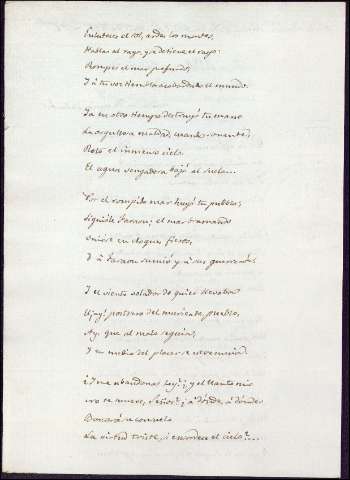 Enluteces el sol, ardes los montes,
Hablas al rayo, y se detiene el rayo:
Rompes el mar profundo,
I á tu voz tiembla acobardado el mundo.
Ya en otro tiempo destruyó tu mano
La orgullosa maldad,
Roto el inmenso cielo
El agua vengadora bajó al suelo...
Por el rompido mar huyó tu pueblo;
Siguióle Faraon; el mar bramando
Uniose en choque fiero,
I á Faraon sumió y á sus guerreros.
I el viento volador do quier llevaba
El ¡ay! postrero del muriente pueblo,
Ay. que al malo seguia,
I en medio del placer le
¿I me abandonas hoy? ¿y el llanto mio
no te mueve, Señor? ¿á dónde, á dónde
Buscará consuelo
La virtud triste, si enmudece el cielo?...